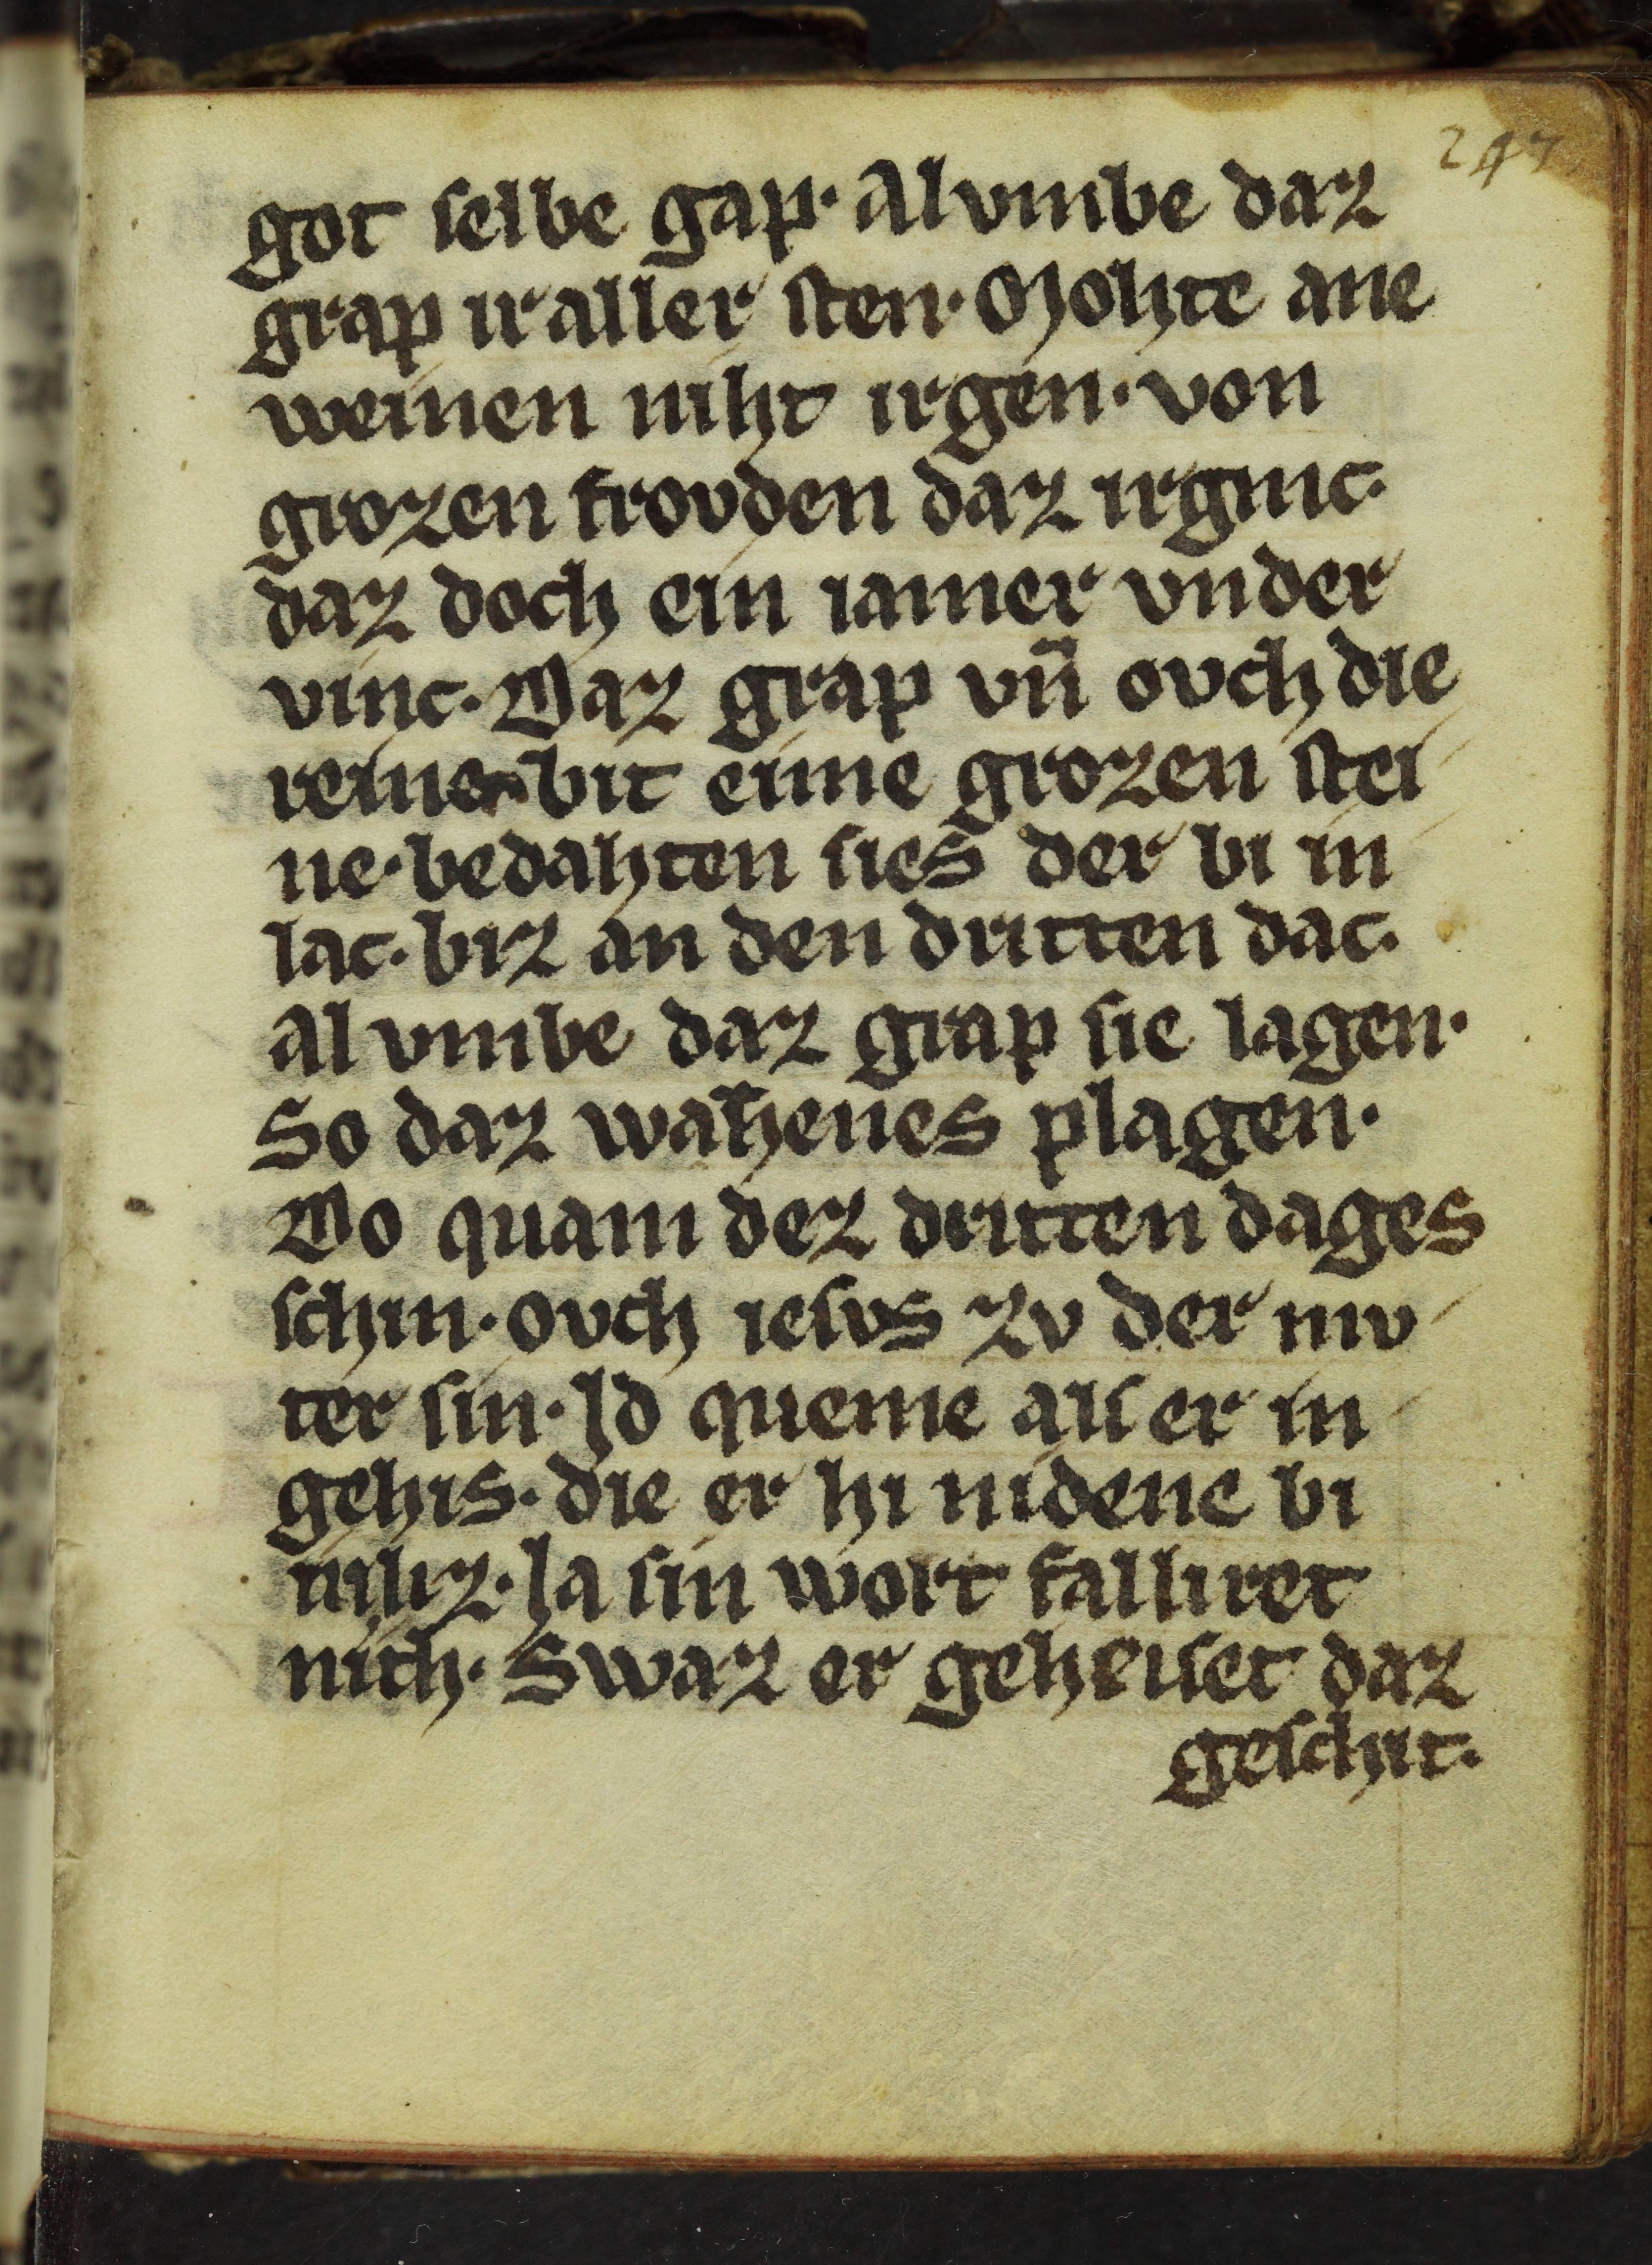 247
got selbe gap. Al vmbe daz
grap ir aller sten. Mohte ane
weinen niht irgen. von
grozen frovden daz irginc.
daz doch ein iamer vnder
vinc. Daz grap vn̄ ovch die
reine. bit eime grozen stei
ne. bedahten sies der bi in
lac. biz an den dritten dac.
Al vmbe daz grap sie lagen.
So daz wahenes plagen.
Do quam dez dritten dages
schin. ovch iesvs zv der mv
ter sin. Id queme als er in
gehis. die er hi nidene bi
Ia sin wort falliret
nith. Swaz er geheiset daz
geschit.